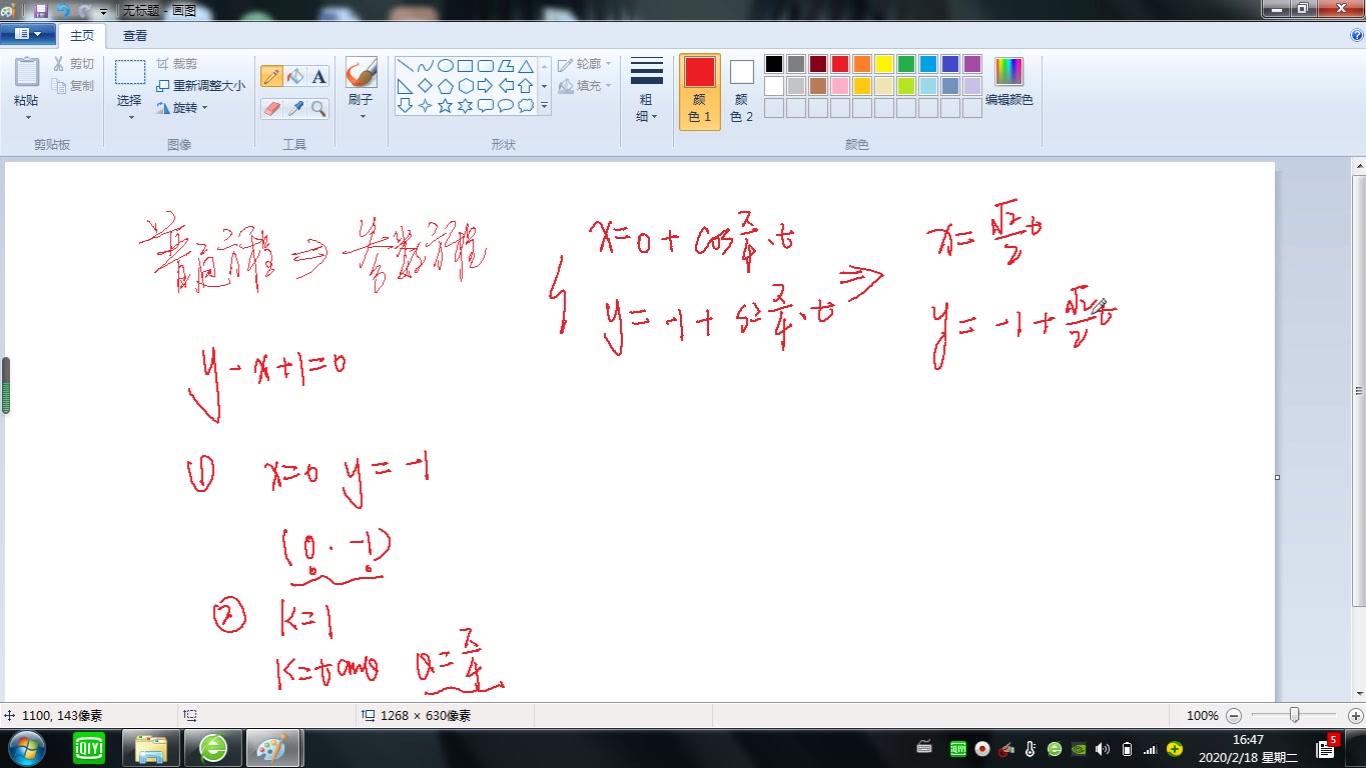 无标题 - 画图
主页 查看
粘贴 剪切 复制 剪贴板
选择 裁剪 重新调整大小 旋转 图像
A 工具
刷子
轮廓 填充 形状
粗细
颜色 1 颜色 2 编辑颜色 颜色
普通方程 ⇒ 参数方程
y - x + 1 = 0
① x = 0 y = -1
(0 . -1)
② K = 1
K = tanθ θ = π/4
x = 0 + cos π/4 . t
y = -1 + sin π/4 . t
⇒
x = √2/2 t
y = -1 + √2/2 t
1100, 143像素 1268 × 630像素 100%
QIYI
QIYI 16:47
2020/2/18 星期二 5